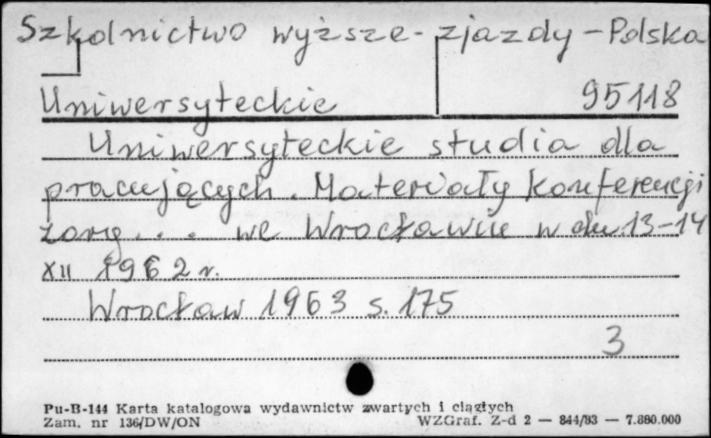 Szkolnictwo wyższe - zjazdy - Polska
Uniwersyteckie 95118
Uniwersyteckie studia dla
pracujących. Materiały konferencji
zorg... we Wrocławiu w dn. 13-14
XII 1962 r.
Wrocław 1963 s. 175
3
Pu-B-144 Karta katalogowa wydawnictw zwartych i ciągłych
Zam. nr 136/DW/ON WZGraf. Z-d 2 — 844/83 — 7.880.000